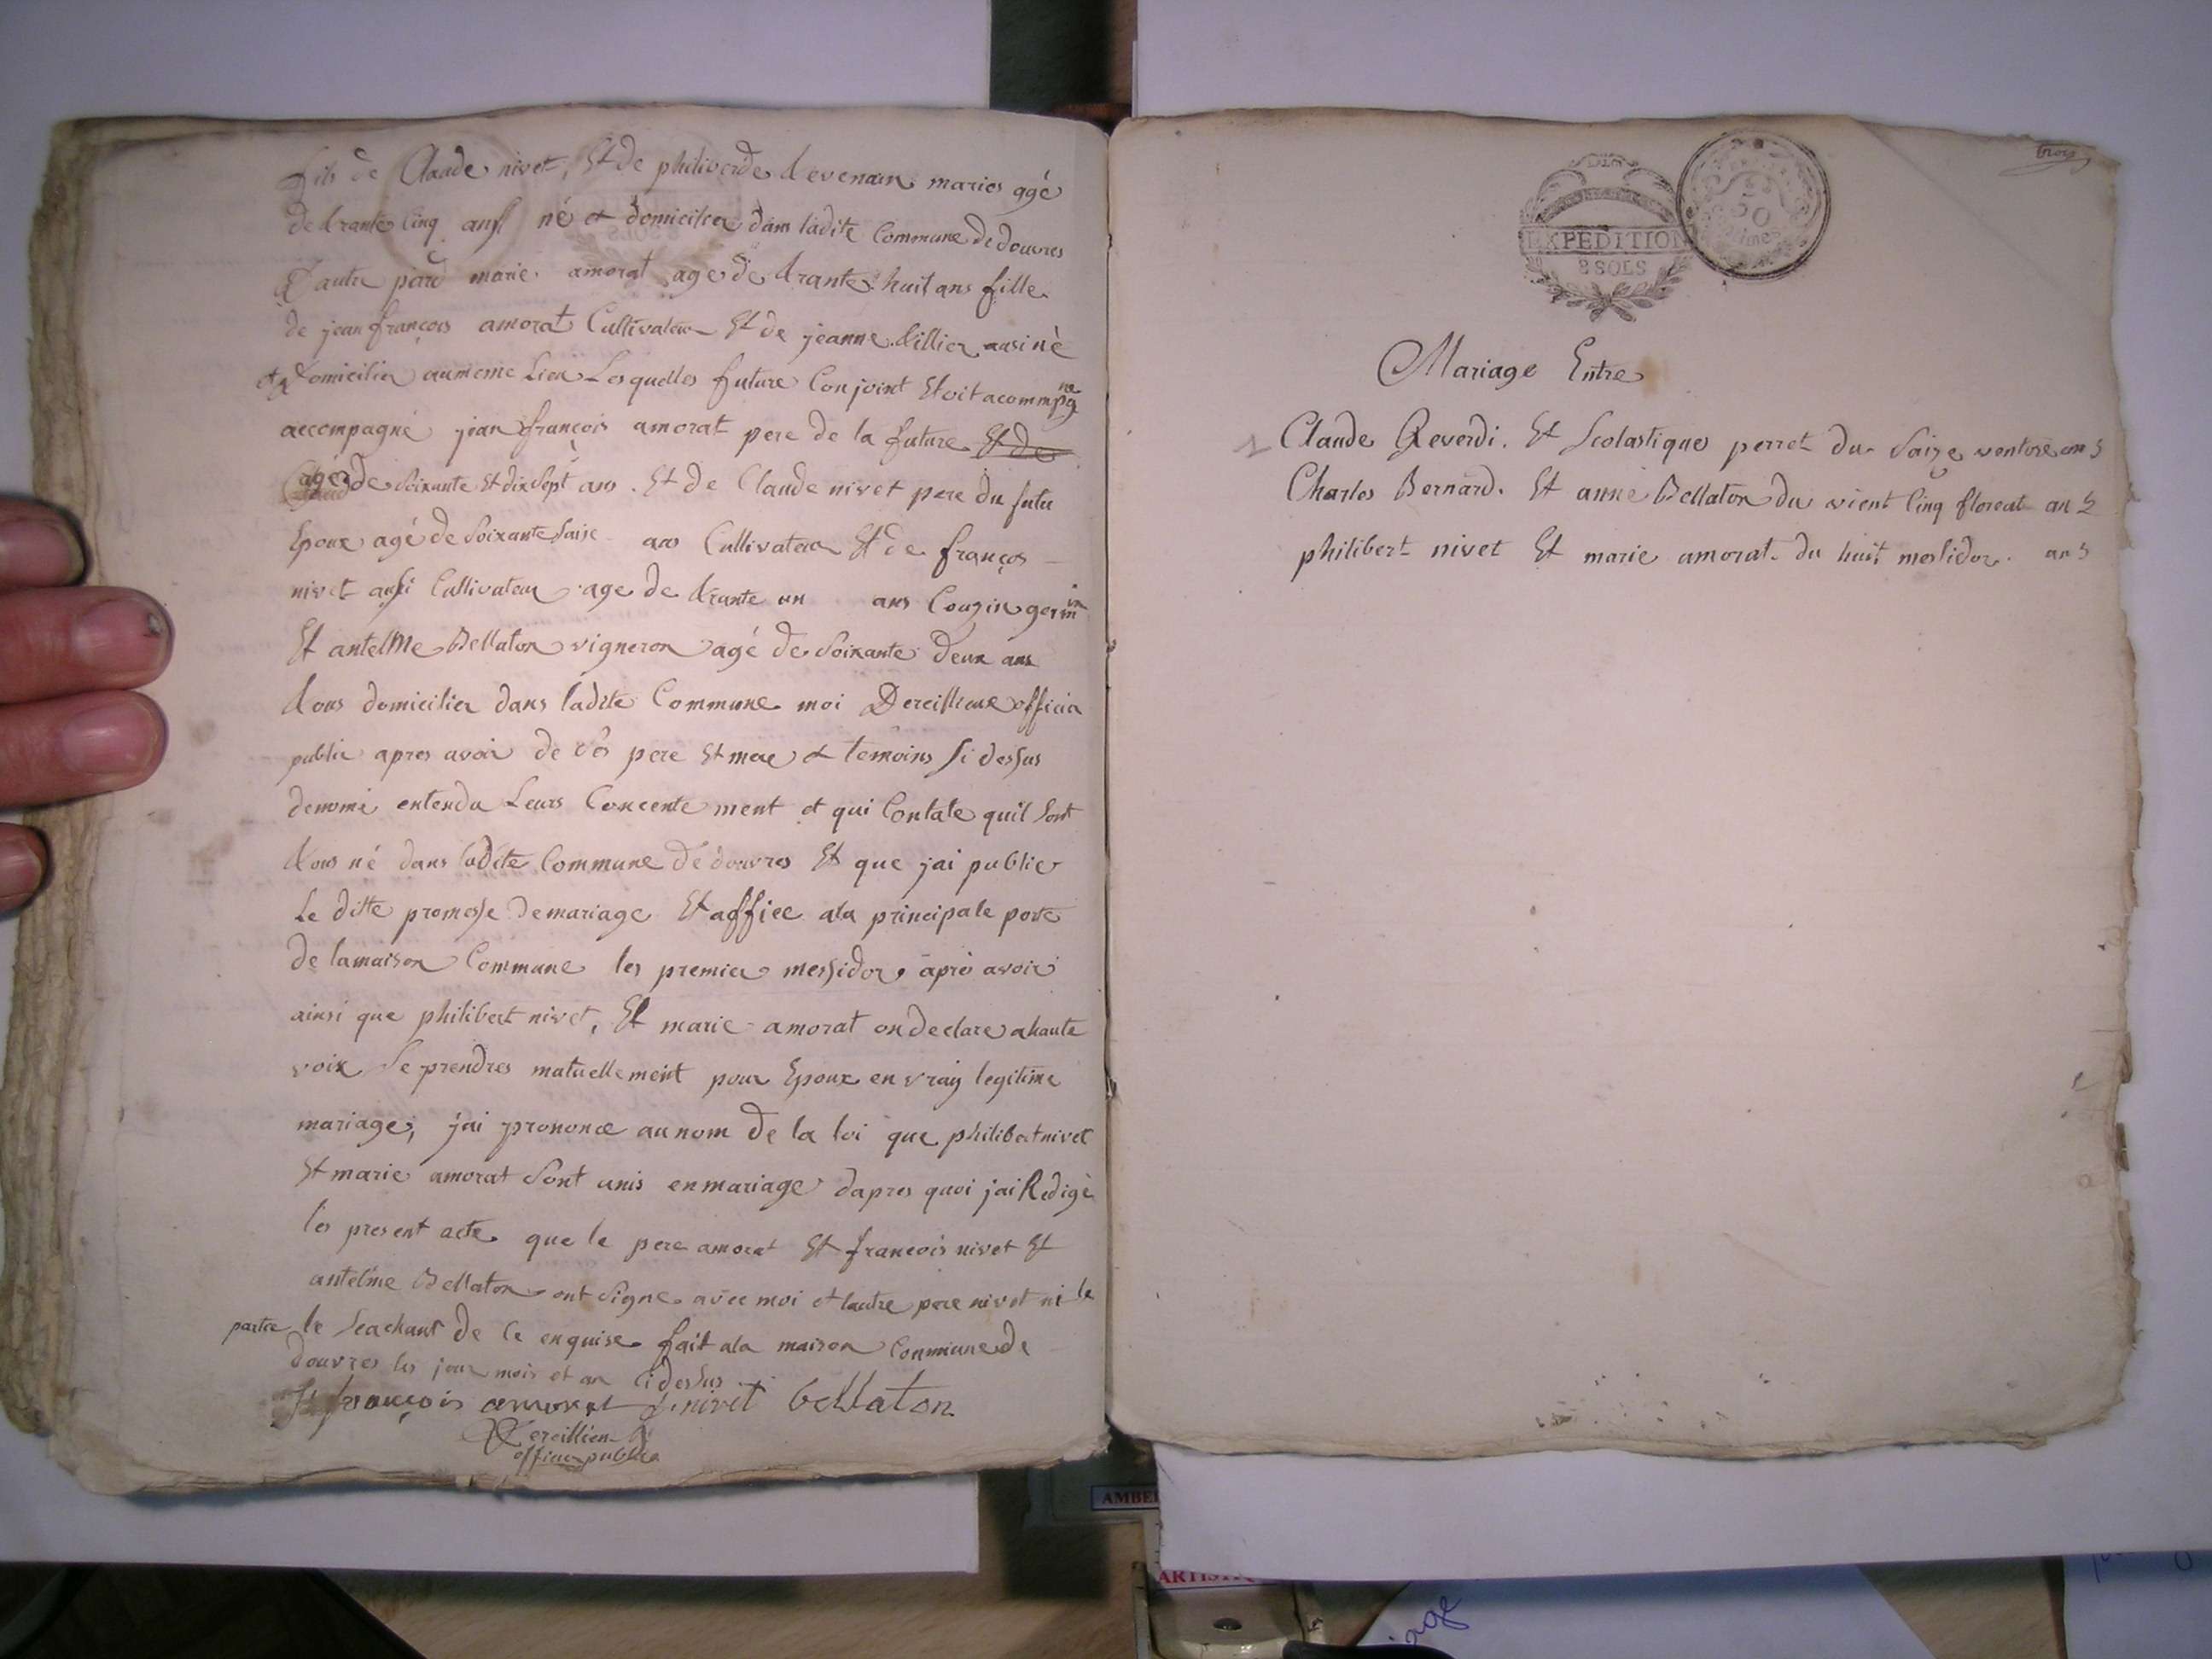 fils de Claude nivet, Et de philiverde devenam maries agé
de trante Cinq ans né et domicilier dans ladite Commune de douvres
D'autre part marie amorat age de trante huit ans fille
de jean françois amorat Cultivateur Et de jeanne tillier ausi né
et domicilier aumeme Lieu Lesquelles future Conjoint Etoit acommpgné
accompagné jean françois amorat pere de la future Et de
agé de Soixante Et dix Sept ans. Et de Claude nivet pere du futu
Epoux agé de Soixante Saise ans Cultivateur Et de françois
nivet ausi Cultivateur age de trante un ans Cougin germin
Et antelMe Bellaton vigneron agé de Soixante deux ans
tous domicilier dans ladite Commune moi Dereillieux officia
public apres avoir de Cés pere Et mere & temoins Si dessus
denomé entendu Leurs Concente ment et qui Contate quil Sont
tous né dans ladite Commune de douvres Et que jai publie
Le ditte promesse demariage Et affiee ala principale porte
de lamaison Commune les premier messidor aprè avoir
ainsi que philibert nivet, Et marie amorat ondeclare ahaute
voix Se prendres matuellement pour Epoux en vraiy legitime
mariage, jai prononce aunom de la loi que philibert nivet
Et marie amorat Sont unis enmariage dapres quoi jai Redigé
les present acte que le pere amorat Et francois nivet Et
antelme Bellaton ont Signe avec moi et lautre pere nivet ni le
partie le Seachant de Ce enquise fait ala maison Commune de
douvres les jour mois et an Cidessus
françois amorat f. nivet bellaton
Dereillieux
officier public
trois
EXPEDITION
8 SOLS
50
Mariage Entre
Claude Reverdi. Et Scolastique perret du Saize ventose an 5
Charles Bernard. Et anne Bellaton du vient Cinq floreal an 5
philibert nivet Et marie amorat du huit mesidor an 5
AMBE
ARTIST